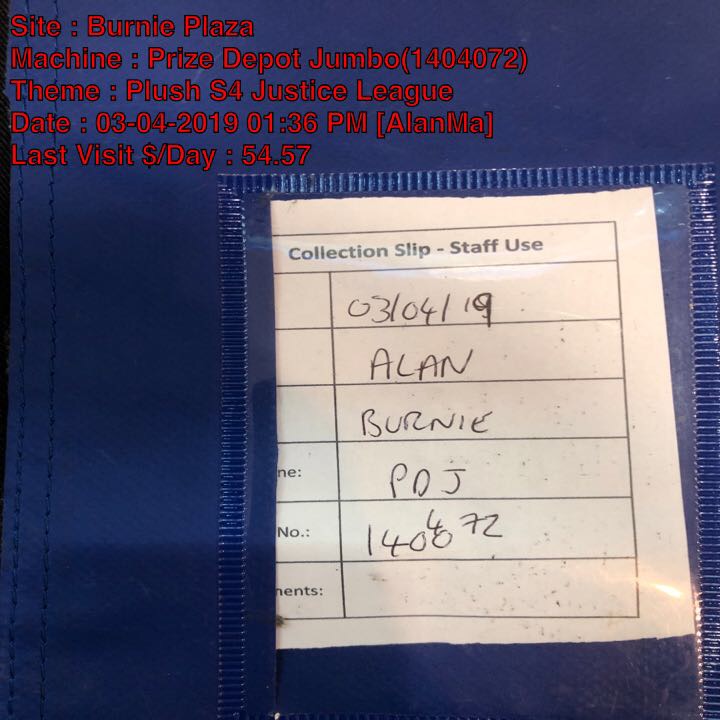 Site : Burnie Plaza
Machine : Prize Depot Jumbo(1404072)
Theme : Plush S4 Justice League
Date : 03-04-2019 01:36 PM [AlanMa]
Last Visit $/Day : 54.57
Collection Slip - Staff Use
03/04/19
ALAN
BURNIE
ne: PDJ
No.: 1404072
nents: